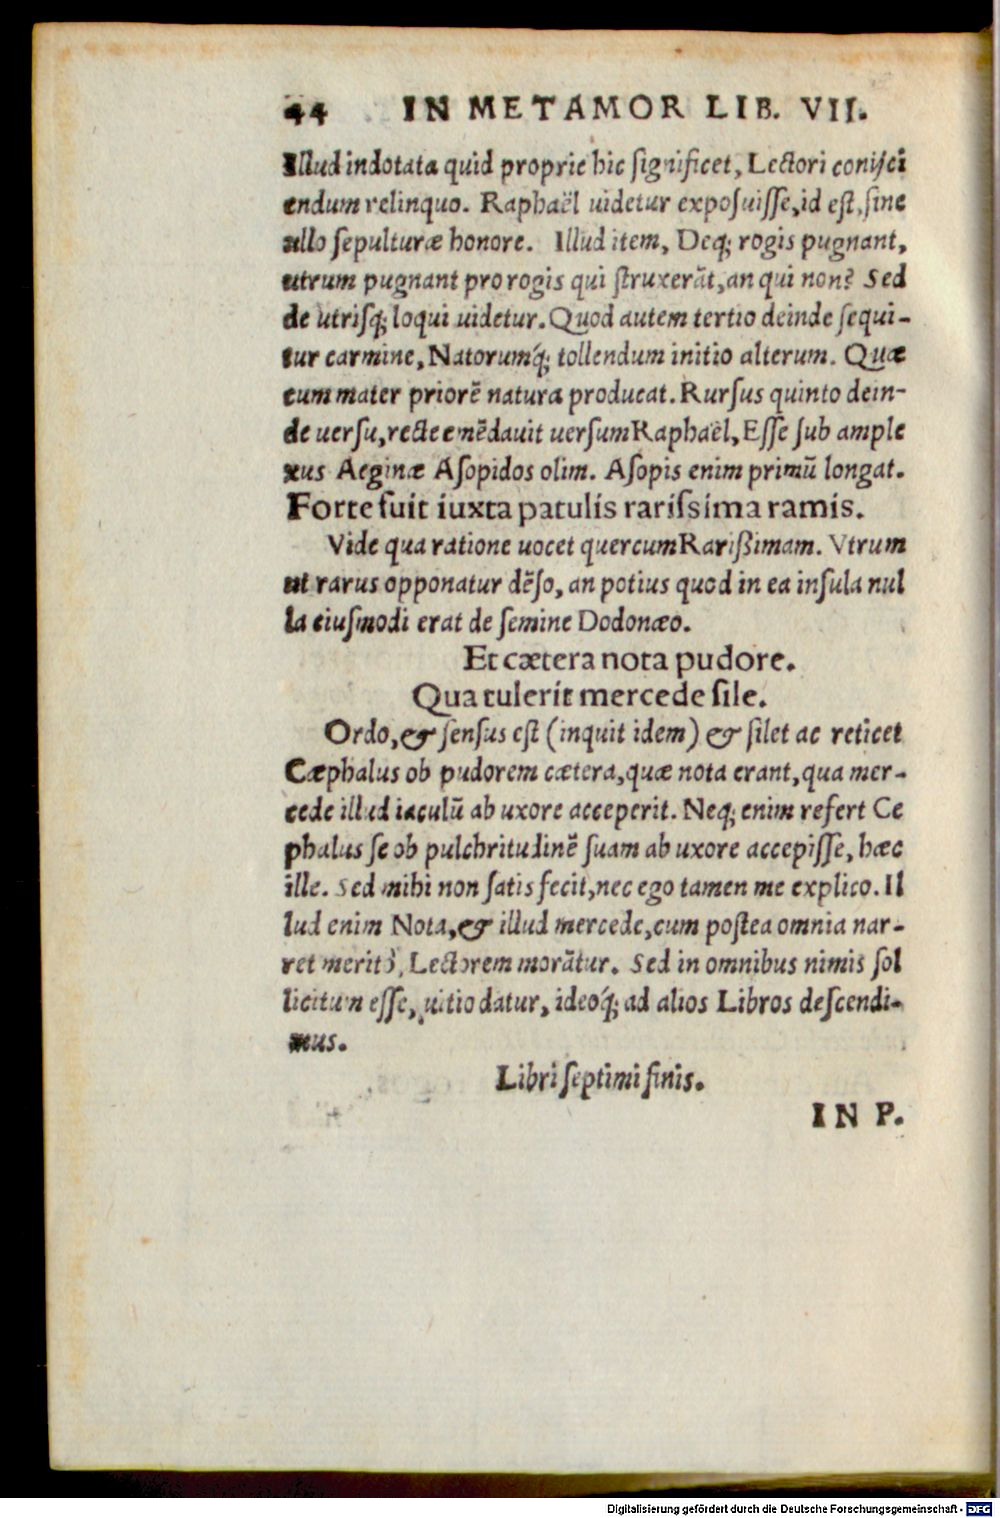 44 IN METAMOR LIB. VII.
Illud indotata quid proprie hic ſignificet, Lectori conijci
endum relinquo. Raphaël uidetur expoſuiſſe, id eſt, ſine
ullo ſepulturæ honore. Illud item, Deq; rogis pugnant,
utrum pugnant pro rogis qui ſtruxerāt, an qui non? Sed
de utriſq; loqui uidetur. Quod autem tertio deinde ſequi-
tur carmine, Natorumq́; tollendum initio alterum. Quæ
cum mater priorē natura producat. Rurſus quinto dein-
de uerſu, recte emēdauit uerſum Raphaël, Eſſe ſub ample
xus Aeginæ Aſopidos olim. Aſopis enim primū longat.
Forte fuit iuxta patulis rariſsima ramis.
Vide qua ratione uocet quercum Rarißimam. Vtrum
ut rarus opponatur dēſo, an potius quod in ea inſula nul
la eiuſmodi erat de ſemine Dodonæo.
Et cætera nota pudore.
Qua tulerit mercede ſile.
Ordo, & ſenſus eſt (inquit idem) & ſilet ac reticet
Cæphalus ob pudorem cætera, quæ nota erant, qua mer-
cede illud iaculū ab uxore acceperit. Neq; enim refert Ce
phalus ſe ob pulchritudinē ſuam ab uxore accepiſſe, hæc
ille. Sed mihi non ſatis fecit, nec ego tamen me explico. Il
lud enim Nota, & illud mercede, cum poſtea omnia nar-
ret meritò, Lectorem morātur. Sed in omnibus nimis ſol
licitum eſſe, uitio datur, ideoq́; ad alios Libros deſcendi-
mus.
Libri ſeptimi finis.
IN P.
Digitalisierung gefördert durch die Deutsche Forschungsgemeinschaft - DFG